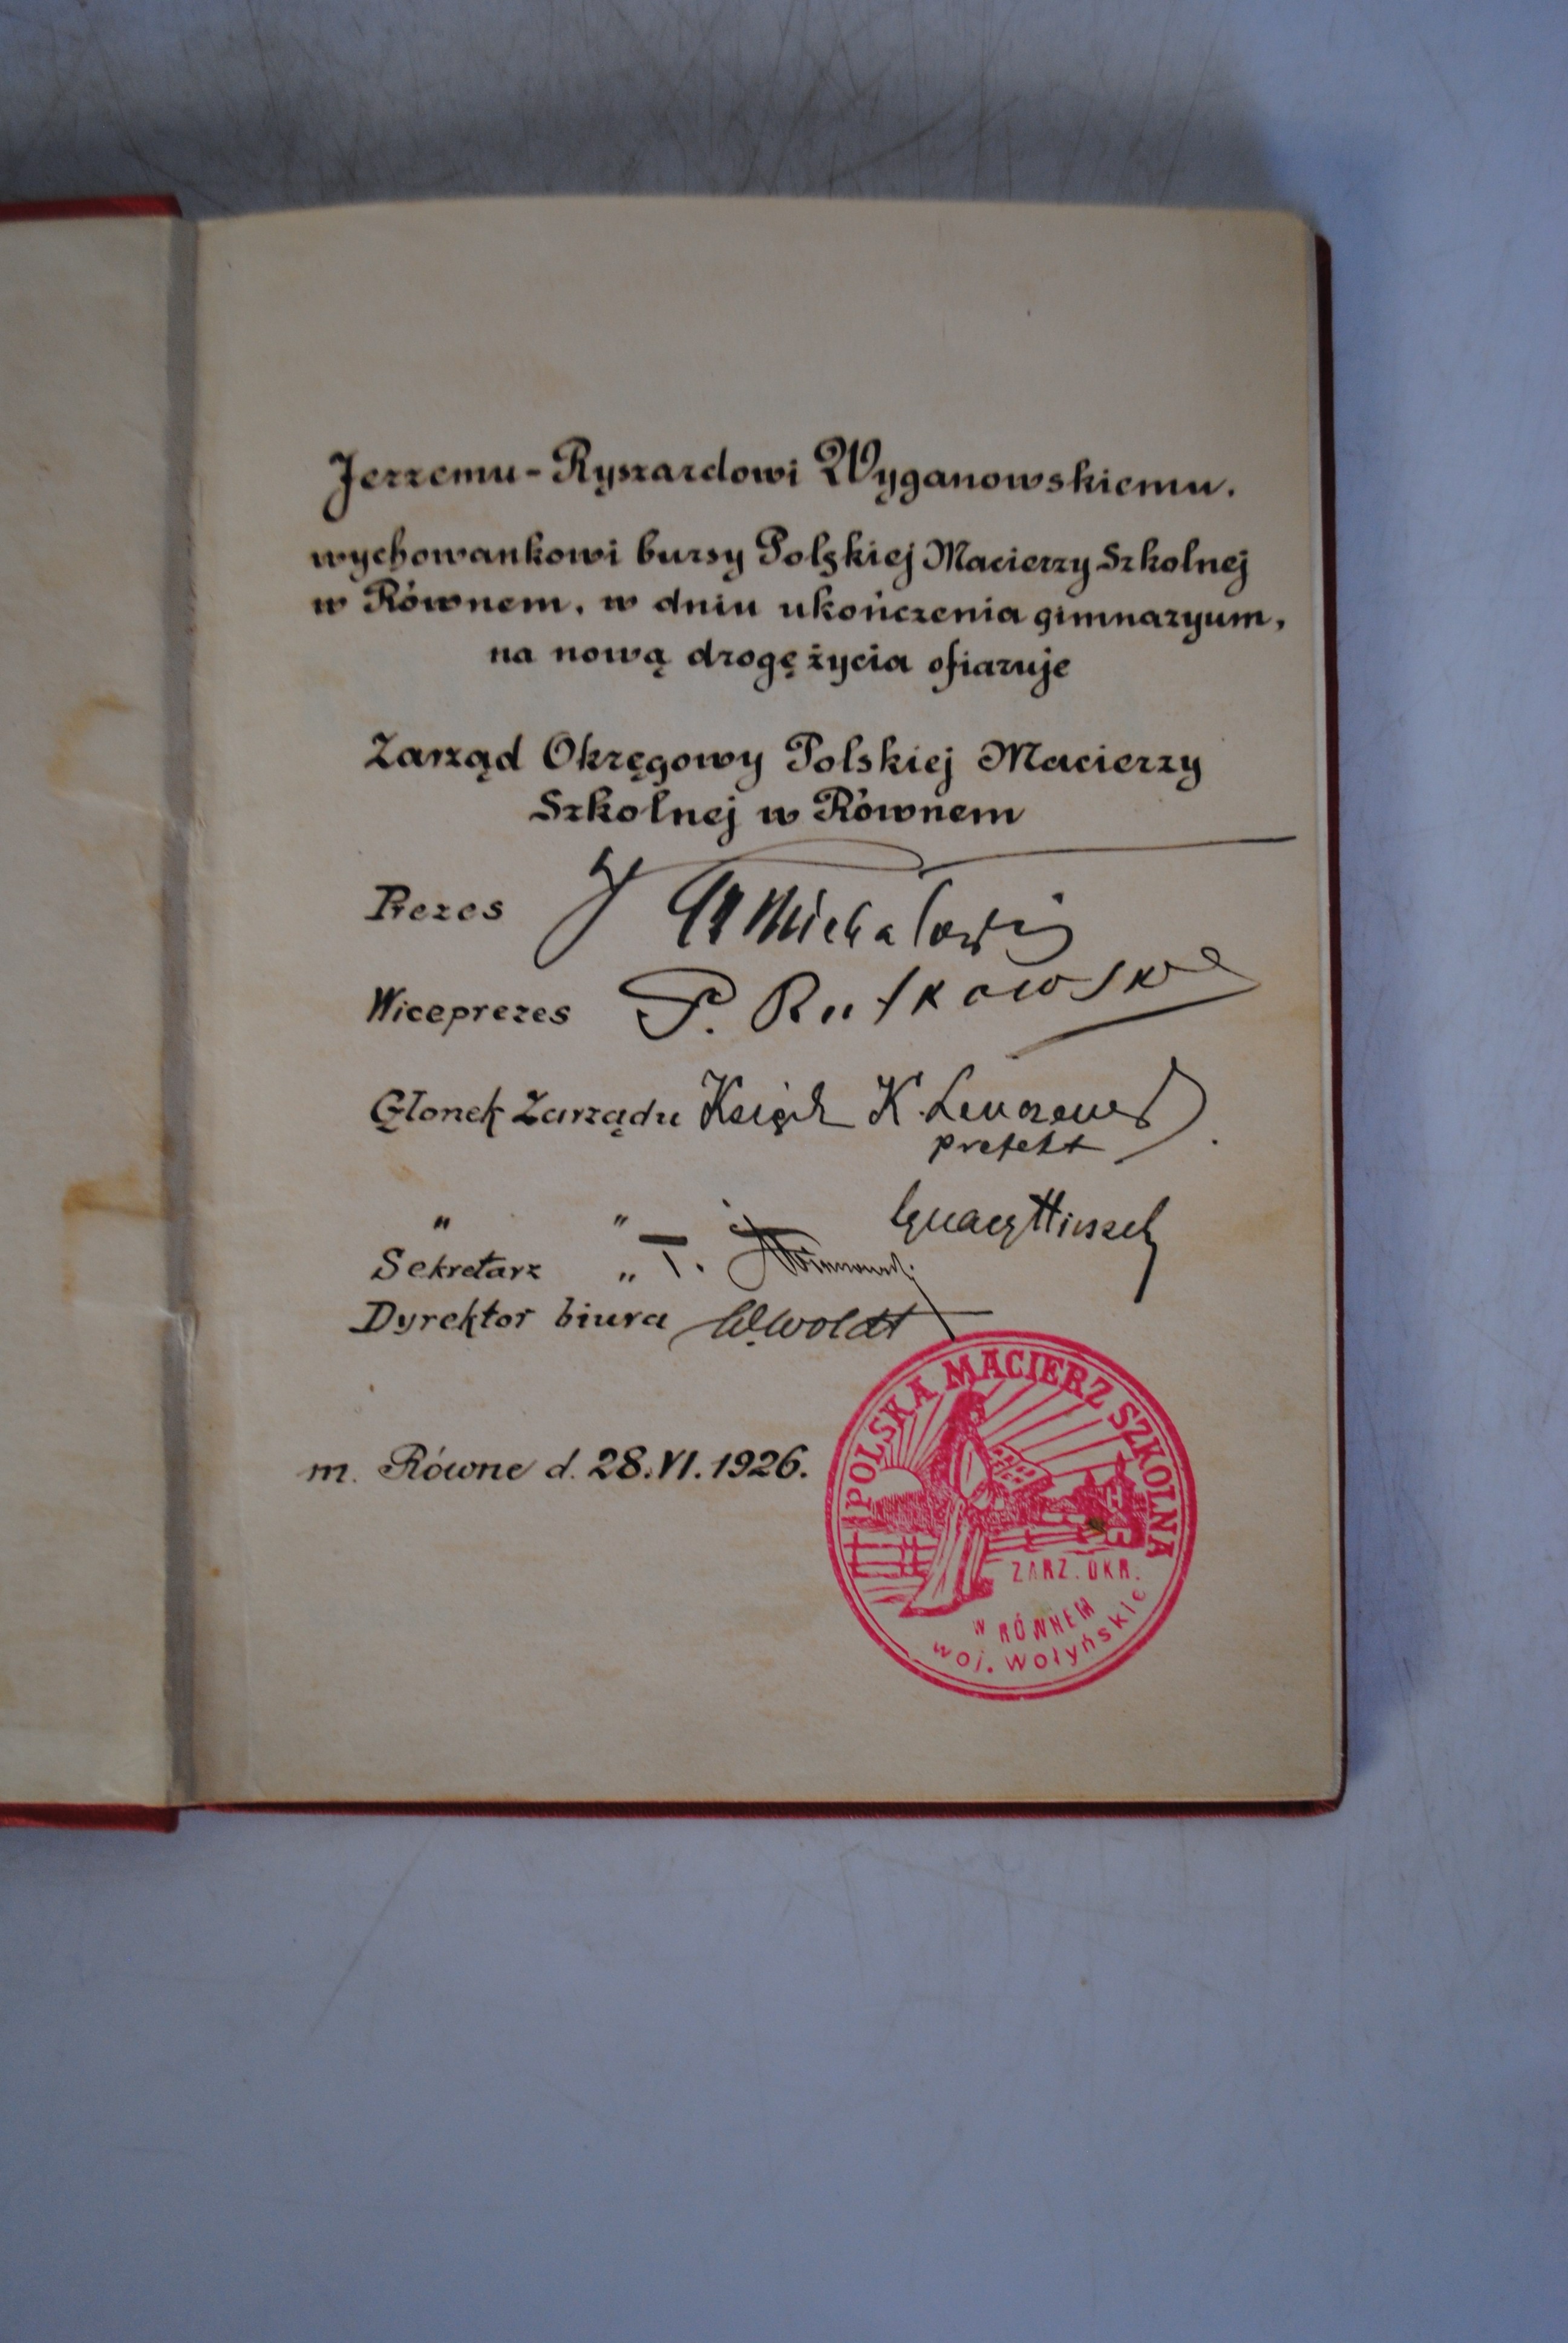 Jerzemu-Ryszardowi Wyganowskiemu.
wychowankowi bursy Polskiej Macierzy Szkolnej
w Równem, w dniu ukończenia gimnazyum,
na nową drogę życia ofiaruje
Zarząd Okręgowy Polskiej Macierzy
Szkolnej w Równem
Prezes
Wiceprezes P. Rutkowski
Członek Zarządu Ksiądz K.
prefekt
" "
Sekretarz " T.
Dyrektor biura W. Woldt
m. Równe d. 28.VI.1926.
POLSKA MACIERZ SZKOLNA
ZARZ. OKR.
W RÓWNEM
woj. Wołyńskie